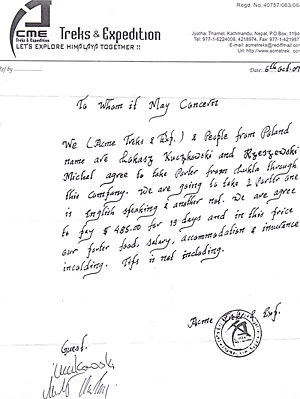 Regd. No. 40757/063/06
ACME
Treks & Expedition
Treks & Expedition
LET'S EXPLORE HIMALAYA TOGETHER !!
Jyatha, Thamel, Kathmandu, Nepal, P.O.Box:
Tel: 977-1-6224008, 4218974, Fax: 977-1-421987
E-mail: acmetreks@rediffmail.com
Url: http://www.acmetrek
Ref by
Date: 6th Oct. 09
To Whom if May Concern
We (Acme Treks & Exf.) & People from Poland
name are Łukasz Kuczkowski and Rzeszewski
Michał agree to take Porter from Lukla through
this Company. We are going to take 2 Porter one
is English speaking & another not. We are agree
to pay $ 485.00 for 13 days and in this price
our porter food, salary, accommodation & insurance
incolding. Tips is not including.
Acme Treks & Exf.
Guest.